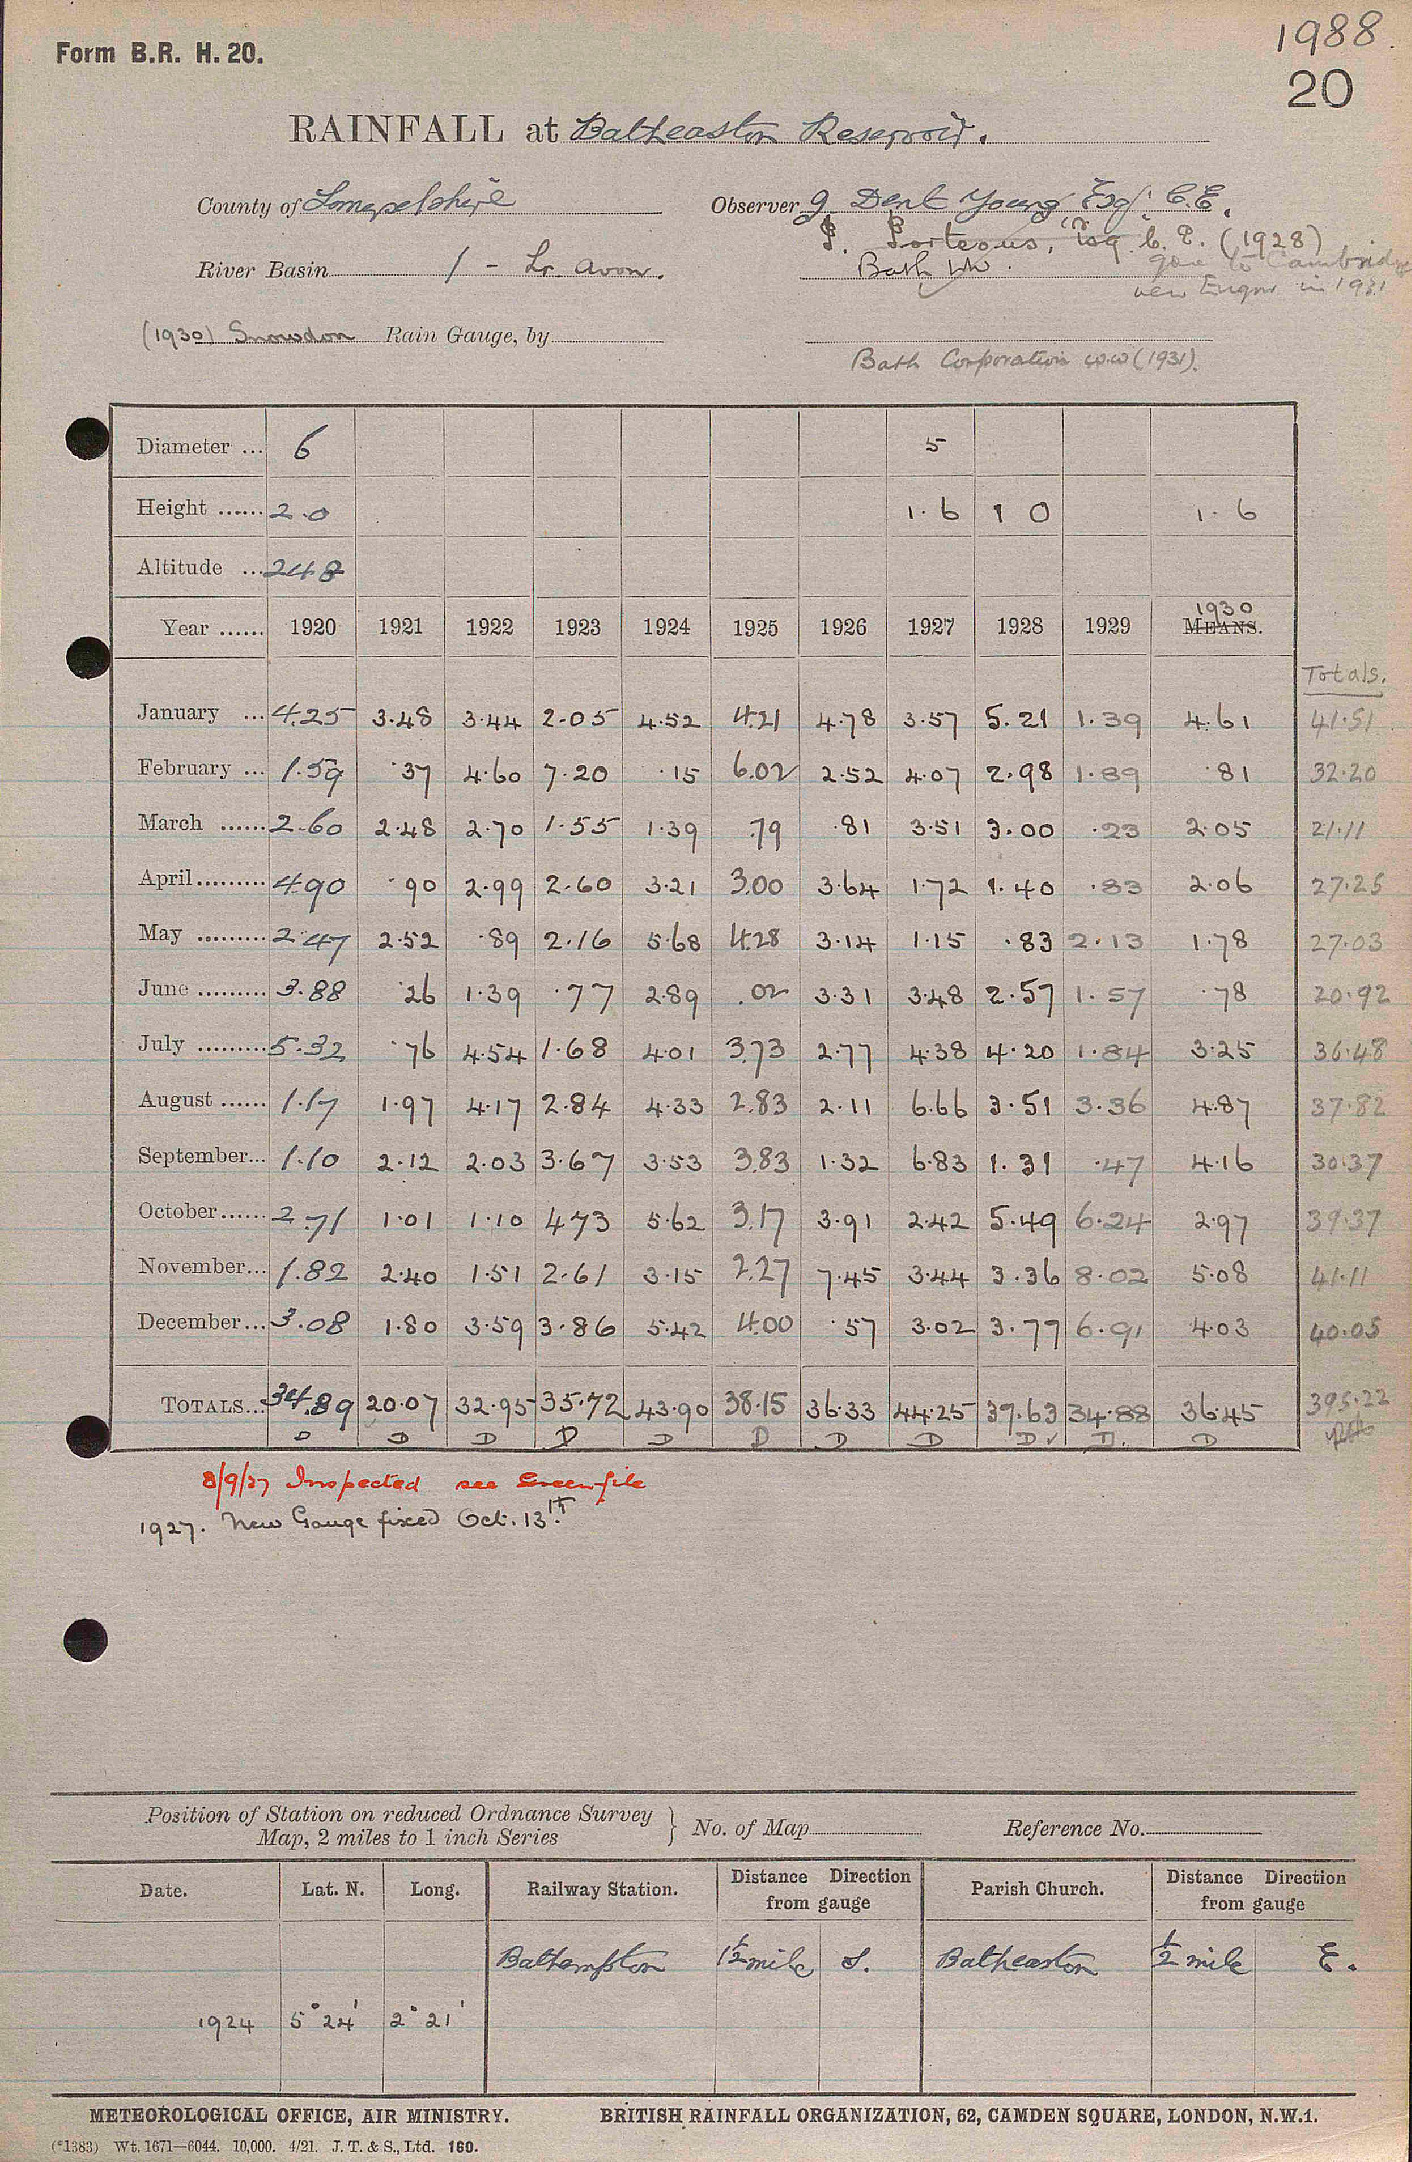 1988.
Form B.R. H. 20.
20
RAINFALL at Batheaston Reservoir.
County of Somersetshire Observer G Dent Young Esq. C.E.
P. Porteous, Esq. C.E. (1928)
River Basin 1 - Lr. Avon. Bath WW. gone to Cambridge
new Engnr in 1931
(1930) Snowdon Rain Gauge, by
Bath Corporation W.W (1931).
Diameter ... 6 5
Height ...... 2.0 1.6 1 0 1.6
Altitude ... 248
Year ...... 1920 1921 1922 1923 1924 1925 1926 1927 1928 1929 1930 MEANS.
Totals.
January ... 4.25 3.48 3.44 2.05 4.52 4.21 4.78 3.57 5.21 1.39 4.61 41.51
February ... 1.59 .37 4.60 7.20 .15 6.02 2.52 4.07 2.98 1.89 .81 32.20
March ...... 2.60 2.48 2.70 1.55 1.39 .79 .81 3.51 3.00 .23 2.05 21.11
April ......... 4.90 .90 2.99 2.60 3.21 3.00 3.64 1.72 1.40 .83 2.06 27.25
May ......... 2.47 2.52 .89 2.16 5.68 4.28 3.14 1.15 .83 2.13 1.78 27.03
June ......... 3.88 .26 1.39 .77 2.89 .02 3.31 3.48 2.57 1.57 .78 20.92
July ......... 5.32 .76 4.54 1.68 4.01 3.73 2.77 4.38 4.20 1.84 3.25 36.48
August ...... 1.17 1.97 4.17 2.84 4.33 2.83 2.11 6.66 3.51 3.36 4.87 37.82
September... 1.10 2.12 2.03 3.67 3.53 3.83 1.32 6.83 1.31 .47 4.16 30.37
October ...... 2.71 1.01 1.10 4.73 5.62 3.17 3.91 2.42 5.49 6.24 2.97 39.37
November... 1.82 2.40 1.51 2.61 3.15 2.27 7.45 3.44 3.36 8.02 5.08 41.11
December... 3.08 1.80 3.59 3.86 5.42 4.00 .57 3.02 3.77 6.91 4.03 40.05
TOTALS... 34.89 20.07 32.95 35.72 43.90 38.15 36.33 44.25 37.63 34.88 36.45 395.22
D D D D D D D D D ✓ D. D
8/9/27 Inspected see Green file
1927. New Gauge fixed Oct. 13th.
Position of Station on reduced Ordnance Survey Map, 2 miles to 1 inch Series } No. of Map Reference No.
Date. Lat. N. Long. Railway Station. Distance Direction from gauge Parish Church. Distance Direction from gauge
Bathampton 1½ mile S. Batheaston ½ mile E.
1924 5° 24' 2° 21'
METEOROLOGICAL OFFICE, AIR MINISTRY. BRITISH RAINFALL ORGANIZATION, 62, CAMDEN SQUARE, LONDON, N.W.1.
(*1383) Wt. 1671—6044. 10,000. 4/21. J. T. & S., Ltd. 160.